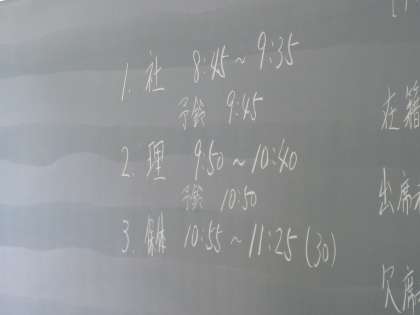 1. 社 8:45~9:35
予鈴 9:45
2. 理 9:50~10:40
予鈴 10:50
3. 保体 10:55~11:25(30)
在籍
出席
欠席